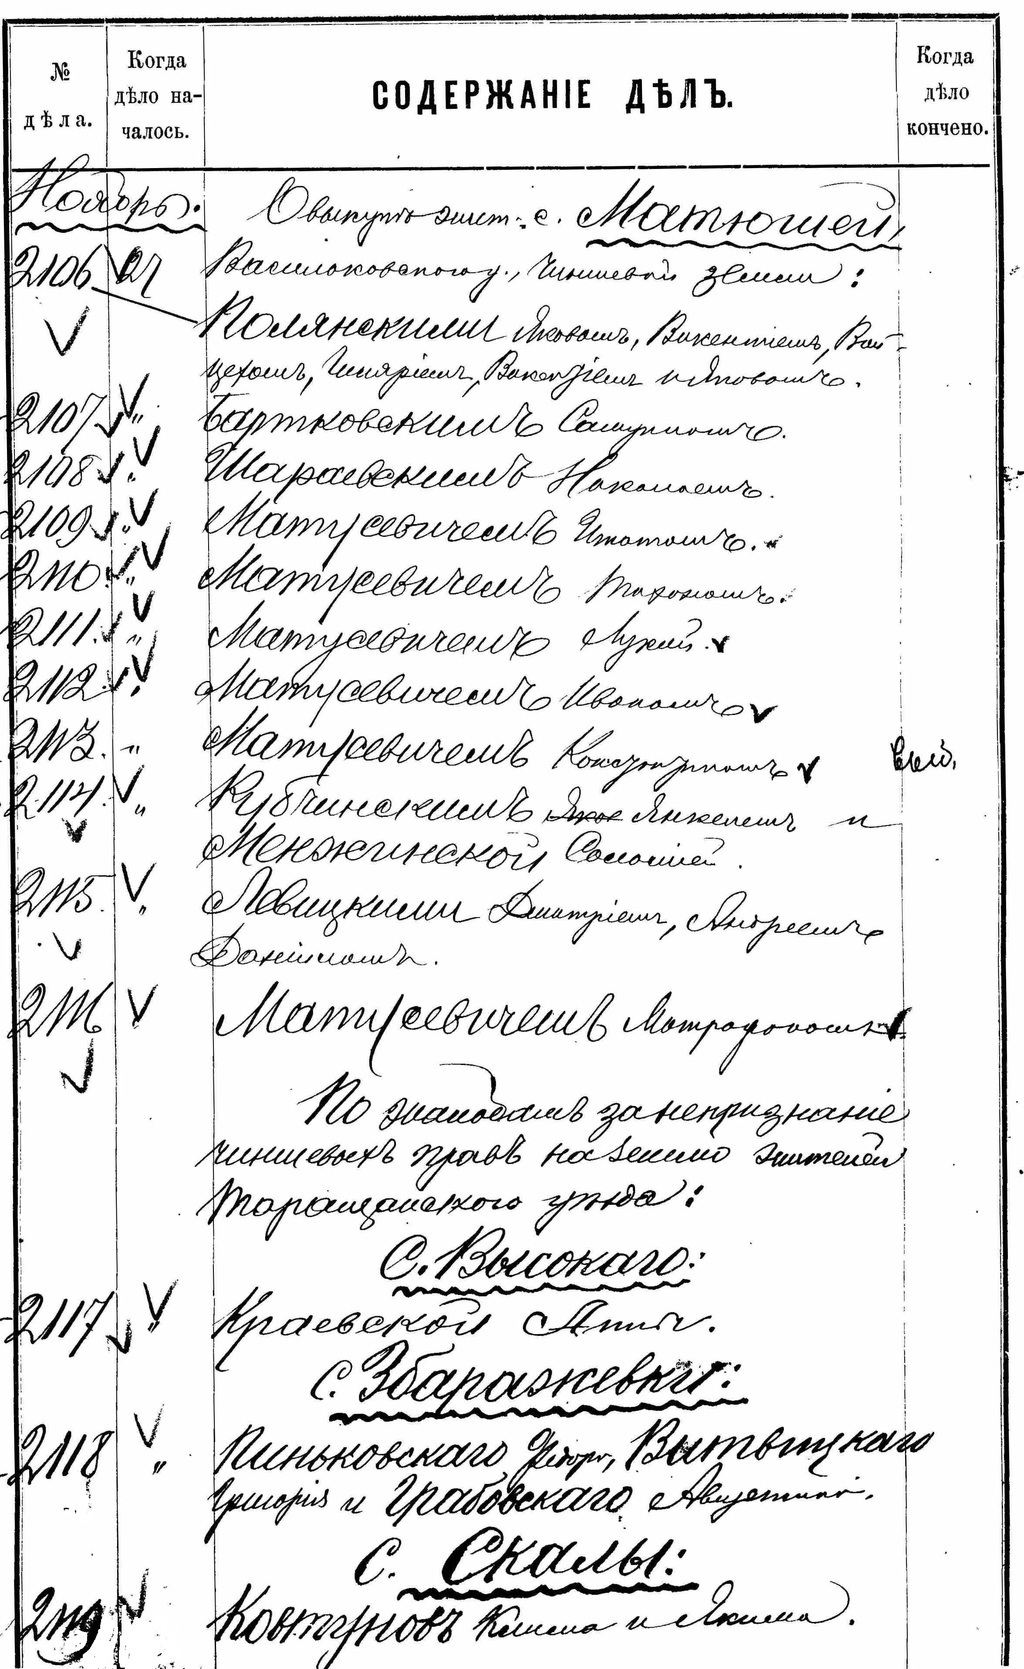 № дѣла.
Когда дѣло началось.
СОДЕРЖАНІЕ ДѢЛЪ.
Когда дѣло кончено.
Ноябрь:
О выкупѣ жит: с. Матюшей,
2106 27 Васильковскаго у., чиншевой земли:
Полянскими Яковомъ, Викентіемъ, Вой-
цехомъ, Викентіемъ и Яковомъ.
2107 " Бартковскимъ
2108 " Шараевскимъ Николаемъ.
2109 " Матусевичемъ Игнатомъ.
2110 " Матусевичемъ
2111. " Матусевичемъ Лукой.
2112 " Матусевичемъ Иваномъ
2113. " Матусевичемъ Константиномъ
2114. " Рубчинскимъ Янкелемъ и
Менжинской Соломіей.
2115. " Левицкими Дмитріемъ, Андреемъ
Даніиломъ.
2116 Матусевичемъ Митрофаномъ
По жалобамъ за непризнаніе
чиншевыхъ правъ на землю жителей
Таращанскаго уѣзда:
С. Высокаго:
2117 " Краевской Анны.
С. Збаражевки:
2118 " Пиньковскаго Витвицкаго
Григорія и Грабовскаго Августина.
С. Скалы:
2119 Ковтуновъ Клима и Якима.